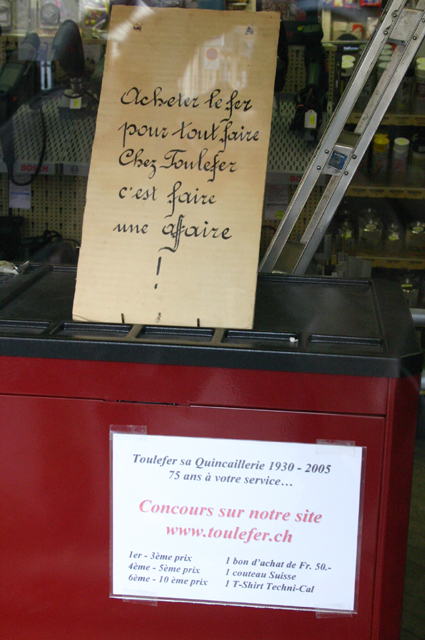 Acheter le fer
pour tout faire
Chez Toulefer
c'est faire
une affaire
!
Toulefer sa Quincaillerie 1930 - 2005
75 ans à votre service...
Concours sur notre site
www.toulefer.ch
1er - 3ème prix 1 bon d'achat de Fr. 50.-
4ème - 5ème prix 1 couteau Suisse
6ème - 10 ème prix 1 T-Shirt Techni-Cal